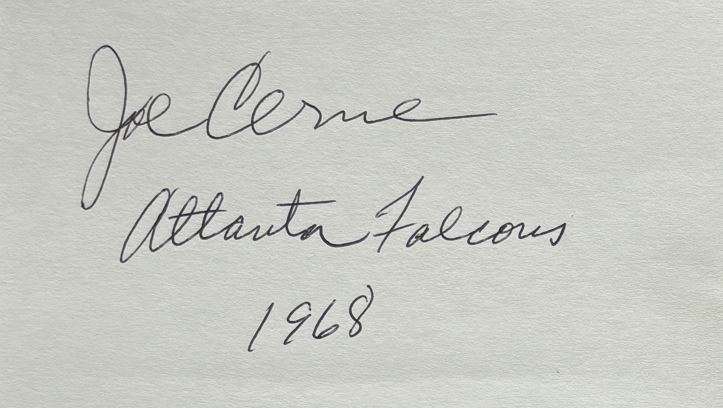 Joe Cerne
Atlanta Falcons
1968